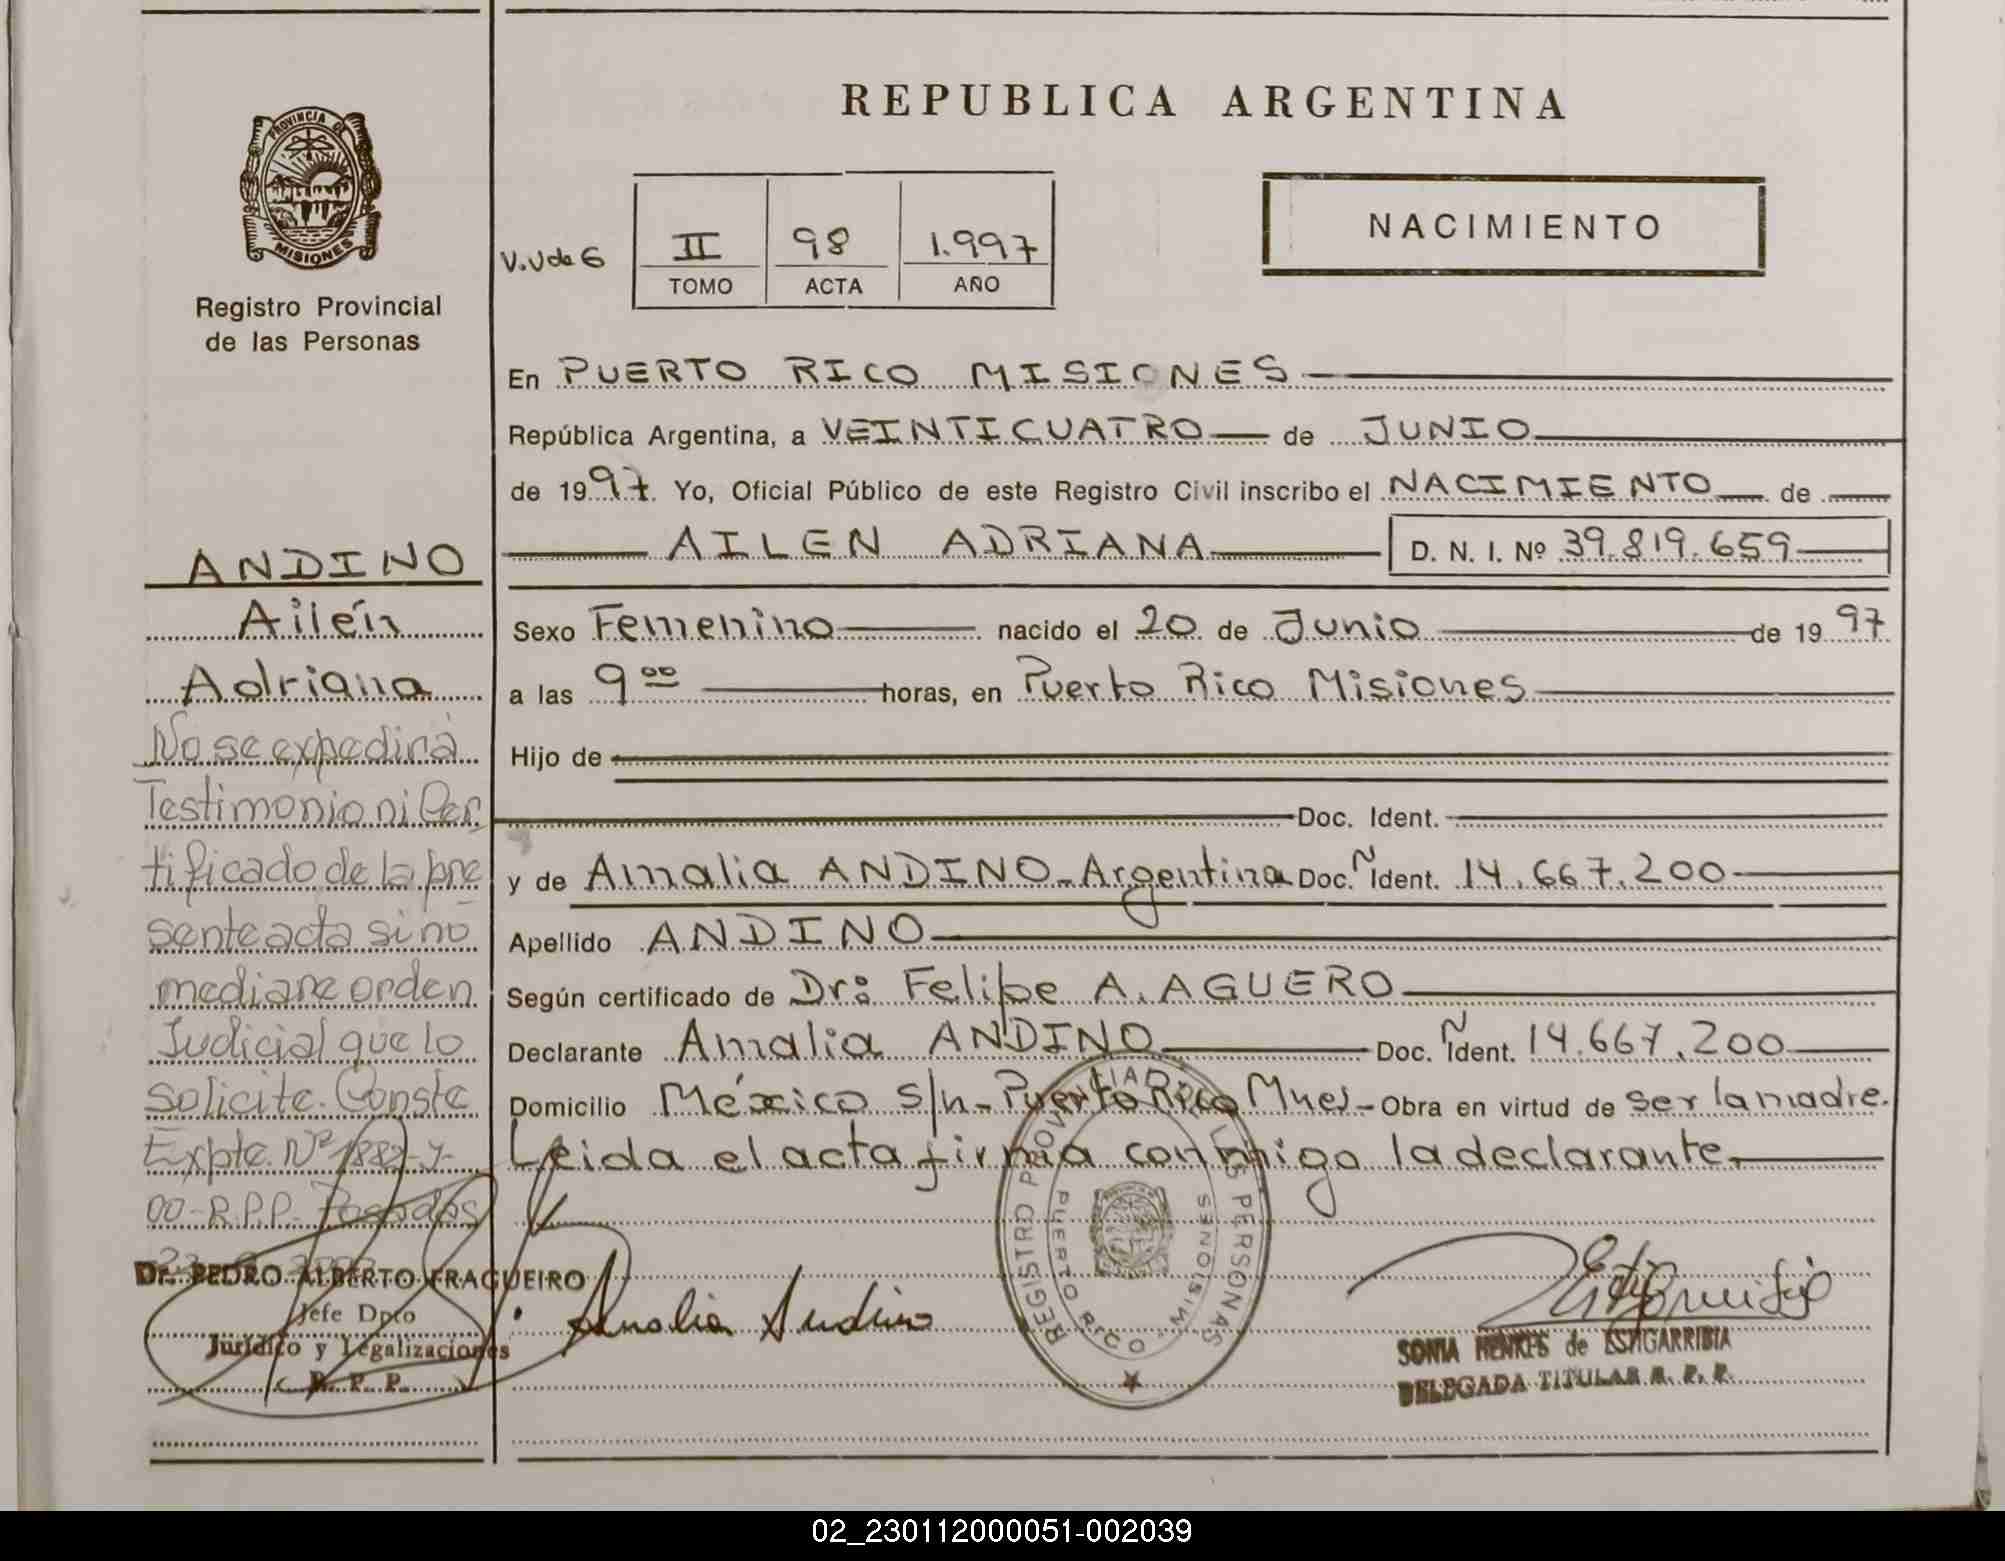 PROVINCIA DE
MISIONES
Registro Provincial
de las Personas
ANDINO
Ailén
Adriana
No se expedirá
Testimonio ni Cer
tificado de la pre
sente acta si no
mediane orden
Judicial que lo
solicite. Conste
Expte. Nº 1882-y-
00-R.P.P. Posadas
Dr. PEDRO ALBERTO FRAGUEIRO
Jefe Dpto
Jurídico y Legalizaciones
R. P. P.
REPUBLICA ARGENTINA
V.V de G
II 98 1.997
TOMO ACTA AÑO
NACIMIENTO
En PUERTO RICO MISIONES
República Argentina, a VEINTICUATRO de JUNIO
de 1997. Yo, Oficial Público de este Registro Civil inscribo el NACIMIENTO de
AILEN ADRIANA D. N. I. Nº 39.819.659
Sexo Femenino nacido el 20 de Junio de 1997
a las 9 00 horas, en Puerto Rico Misiones
Hijo de
Doc. Ident.
y de Amalia ANDINO-Argentina Doc. Ñ Ident. 14.667.200
Apellido ANDINO
Según certificado de Dr: Felipe A. AGUERO
Declarante Amalia ANDINO Doc. Ñ Ident. 14.667.200
Domicilio México s/n- Puerto Rico Mnes- Obra en virtud de ser la madre.
Leida el acta firma conmigo la declarante.
REGISTRO PROVINCIAL DE LAS PERSONAS
PUERTO RICO - MISIONES
Amalia Andino
SONIA HENKES de ESTIGARRIBIA
DELEGADA TITULAR R. P. P.
02_230112000051-002039